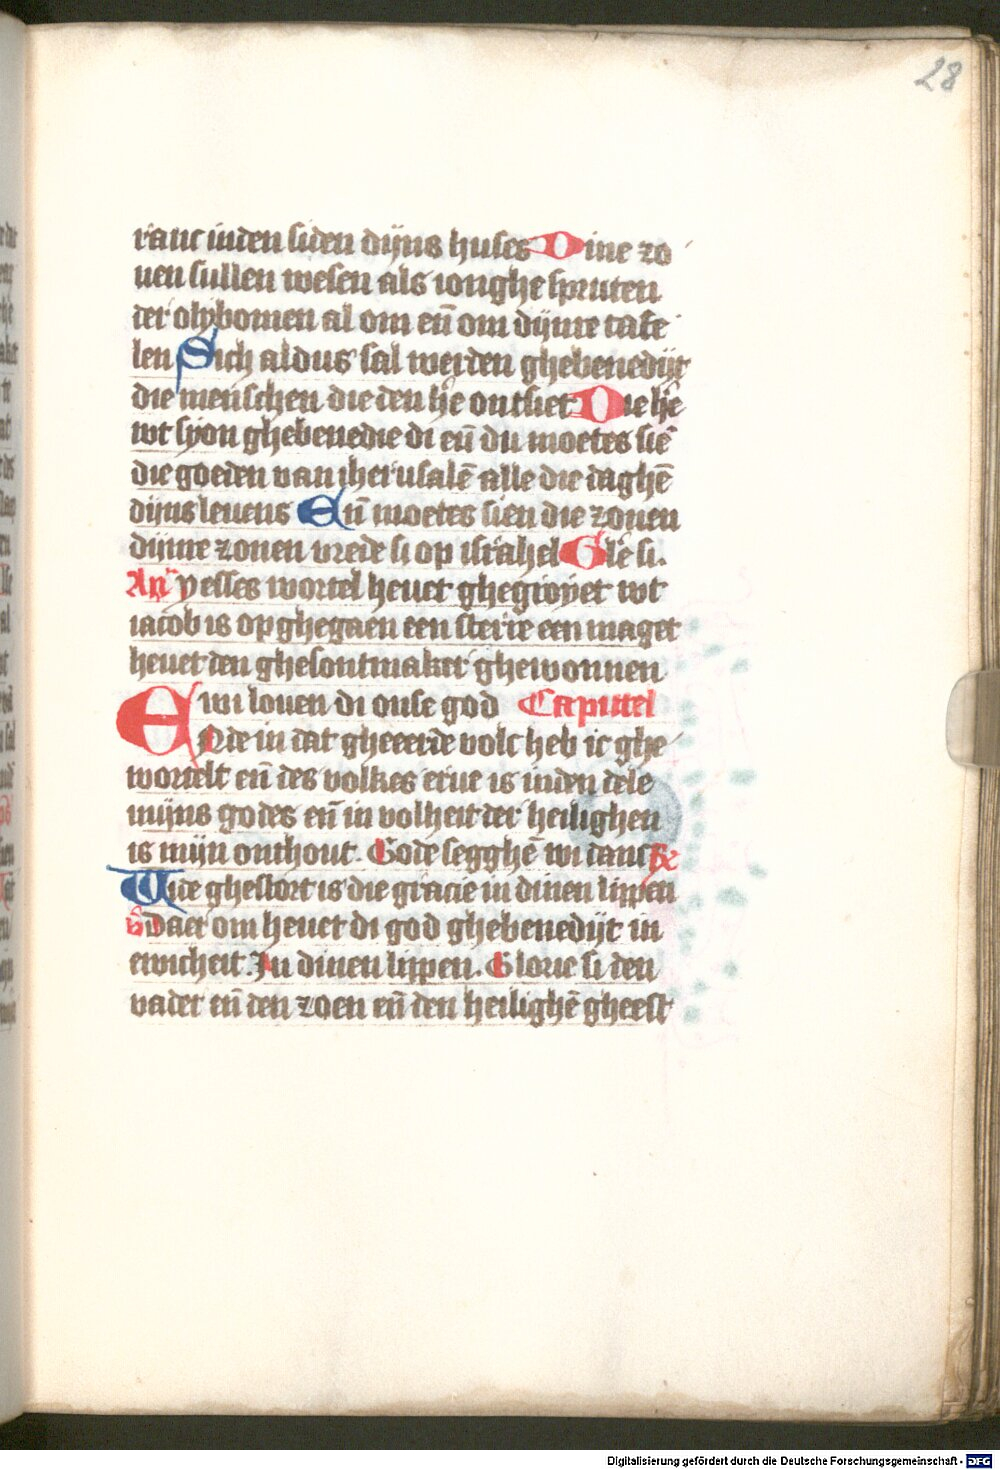 28
ranc inden siden dijns huses Dine zo
nen sullen wesen als ionghe spruten
der olybomen al om en̄ om dijnre tafe
len Sich aldus sal werden ghebenedijt
die menschen die den he᷑ ontsiet Die he᷑
wt syon ghebenedie di en̄ du moetes siē
die goeden van iherusalē alle die daghē
dijns leuens En̄ moetes sien die zonen
dijnre zonen vrede si op israhel Gl'e si.
An᷑ yesses wortel heuet ghegroyet wt
iacob is op ghegaen een sterre een maget
heuet den ghesontmaker ghewonnen
wi louen di onse god Capittel
Ende in dat gheeerde volc heb ic ghe
wortelt en̄ des volkes erue is inden dele
mijns godes en̄ in volheit der heilighen
is mijn onthout. Gode segghē wi danc ℟
Wtie ghestort is die gracie in dinen lippen
℣ Daer om heuet di god ghebenedijt in
ewicheit. In dinen lippen. Glorie si den
vader en̄ den zoen en̄ den heilighē gheest
Digitalisierung gefördert durch die Deutsche Forschungsgemeinschaft - DFG